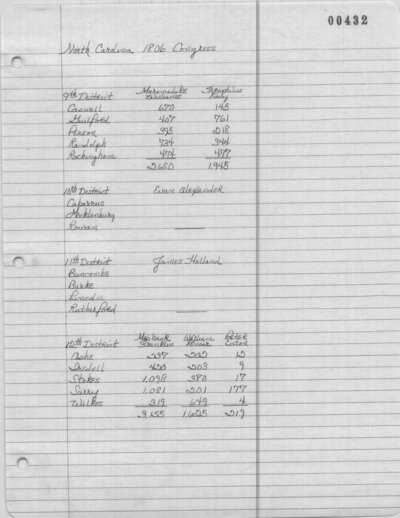 00432
North Carolina 1806 Congress
Marmaduke Theophilus
9th District Williams Lacy
Caswell 670 145
Guilford 407 761
Person 395 218
Randolph 734 344
Rockingham 474 477
2680 1,945
10th District Evan Alexander
Cabarrus
Mecklenburg
Rowan
11th District James Holland
Buncombe
Burke
Lincoln
Rutherford
Meshack William Peter
12th District Franklin
Ashe 237 202 12
Iredell 420 203 9
Stokes 1,098 370 17
Surry 1,081 201 177
Wilkes 319 649 4
3,155 1,625 219